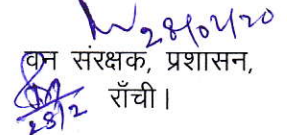 28/02/20
वन संरक्षक, प्रशासन,
राँची।
28/2